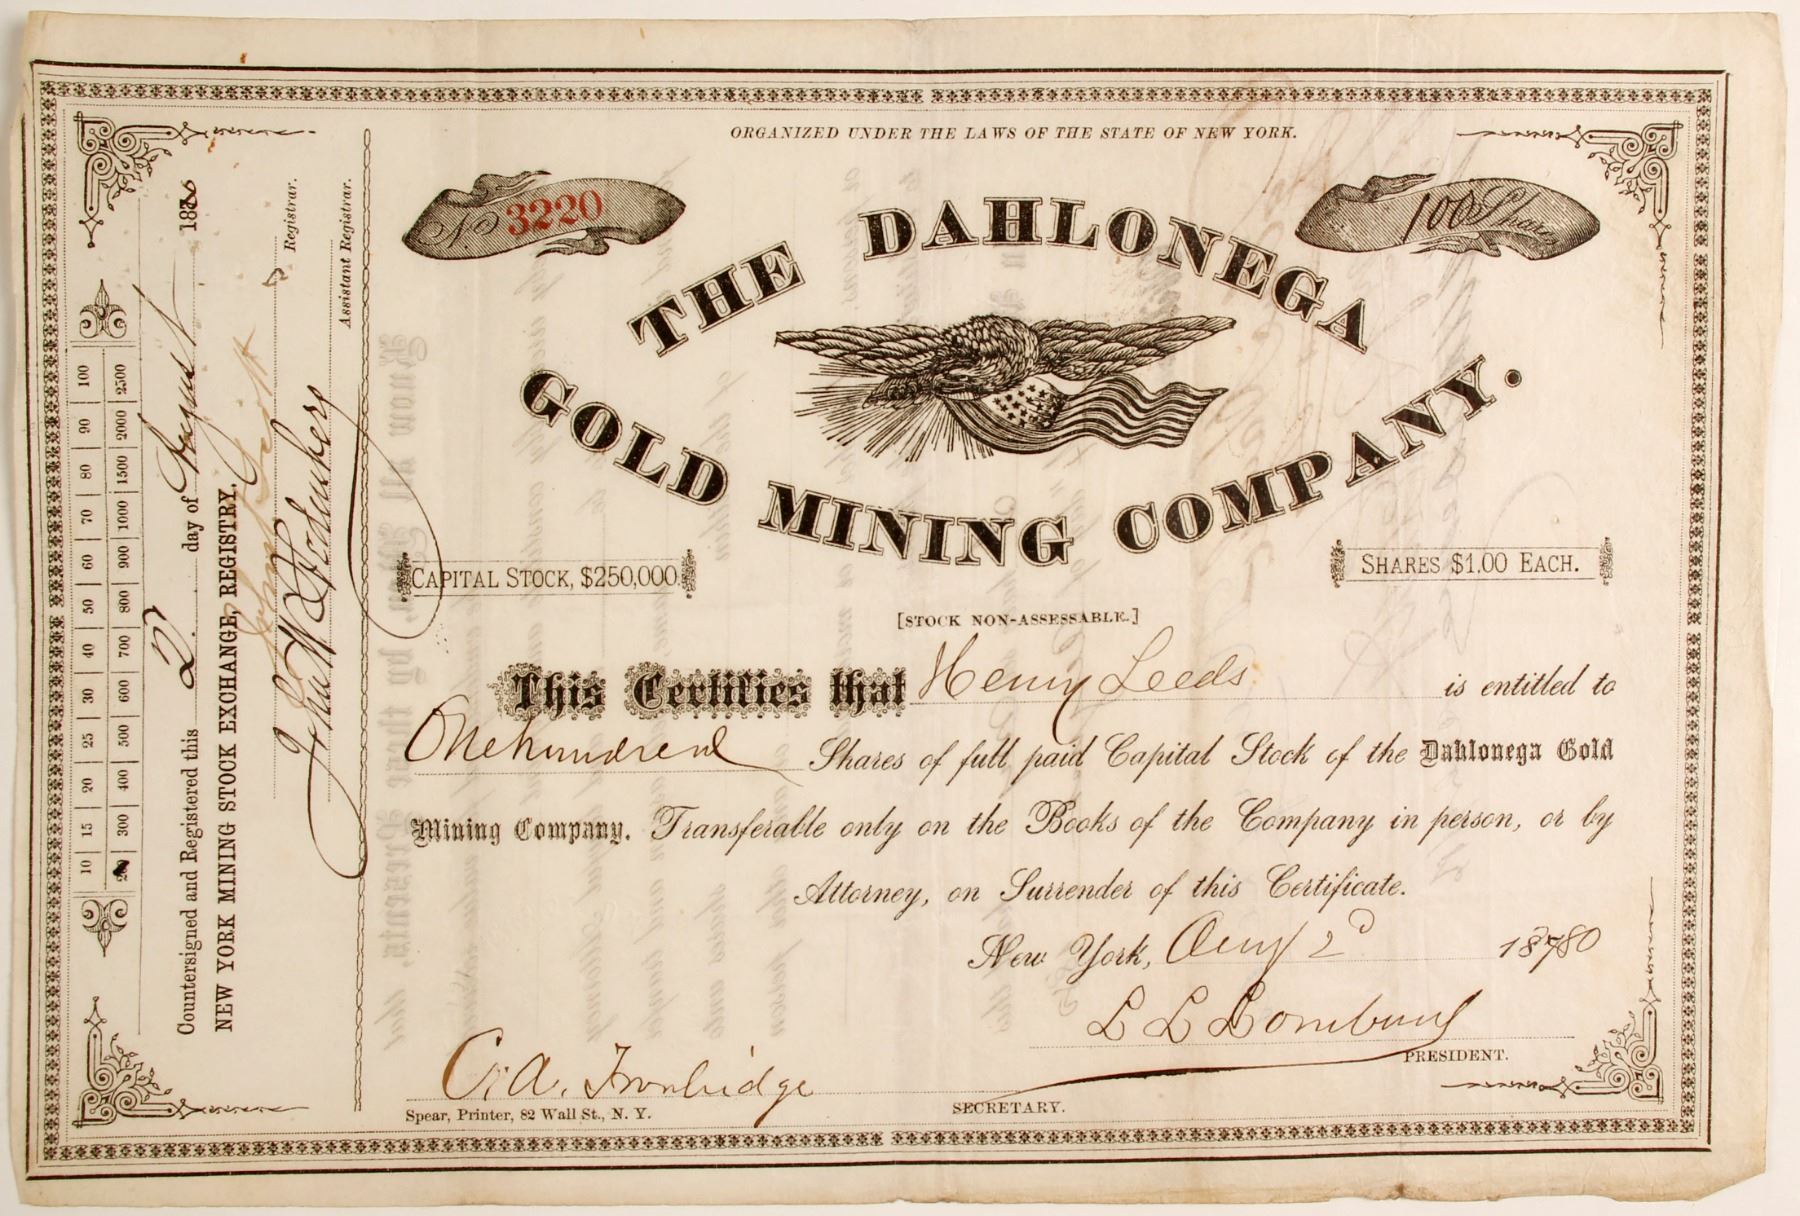 ORGANIZED UNDER THE LAWS OF THE STATE OF NEW YORK.
No 3220
100 Shares
THE DAHLONEGA
GOLD MINING COMPANY.
CAPITAL STOCK, $250,000.
SHARES $1.00 EACH.
[STOCK NON-ASSESSABLE.]
This Certifies that Henry Leeds is entitled to
One hundred Shares of full paid Capital Stock of the Dahlonega Gold
Mining Company. Transferable only on the Books of the Company in person, or by
Attorney, on Surrender of this Certificate.
New York, Aug 2d 1880
PRESIDENT.
C. A.
SECRETARY.
Spear, Printer, 82 Wall St., N. Y.
10 15 20 25 30 40 50 60 70 80 90 100
300 400 500 600 700 800 900 1000 1500 2000 2500
Countersigned and Registered this 2 day of August 188
NEW YORK MINING STOCK EXCHANGE REGISTRY.
Registrar.
John W
Assistant Registrar.